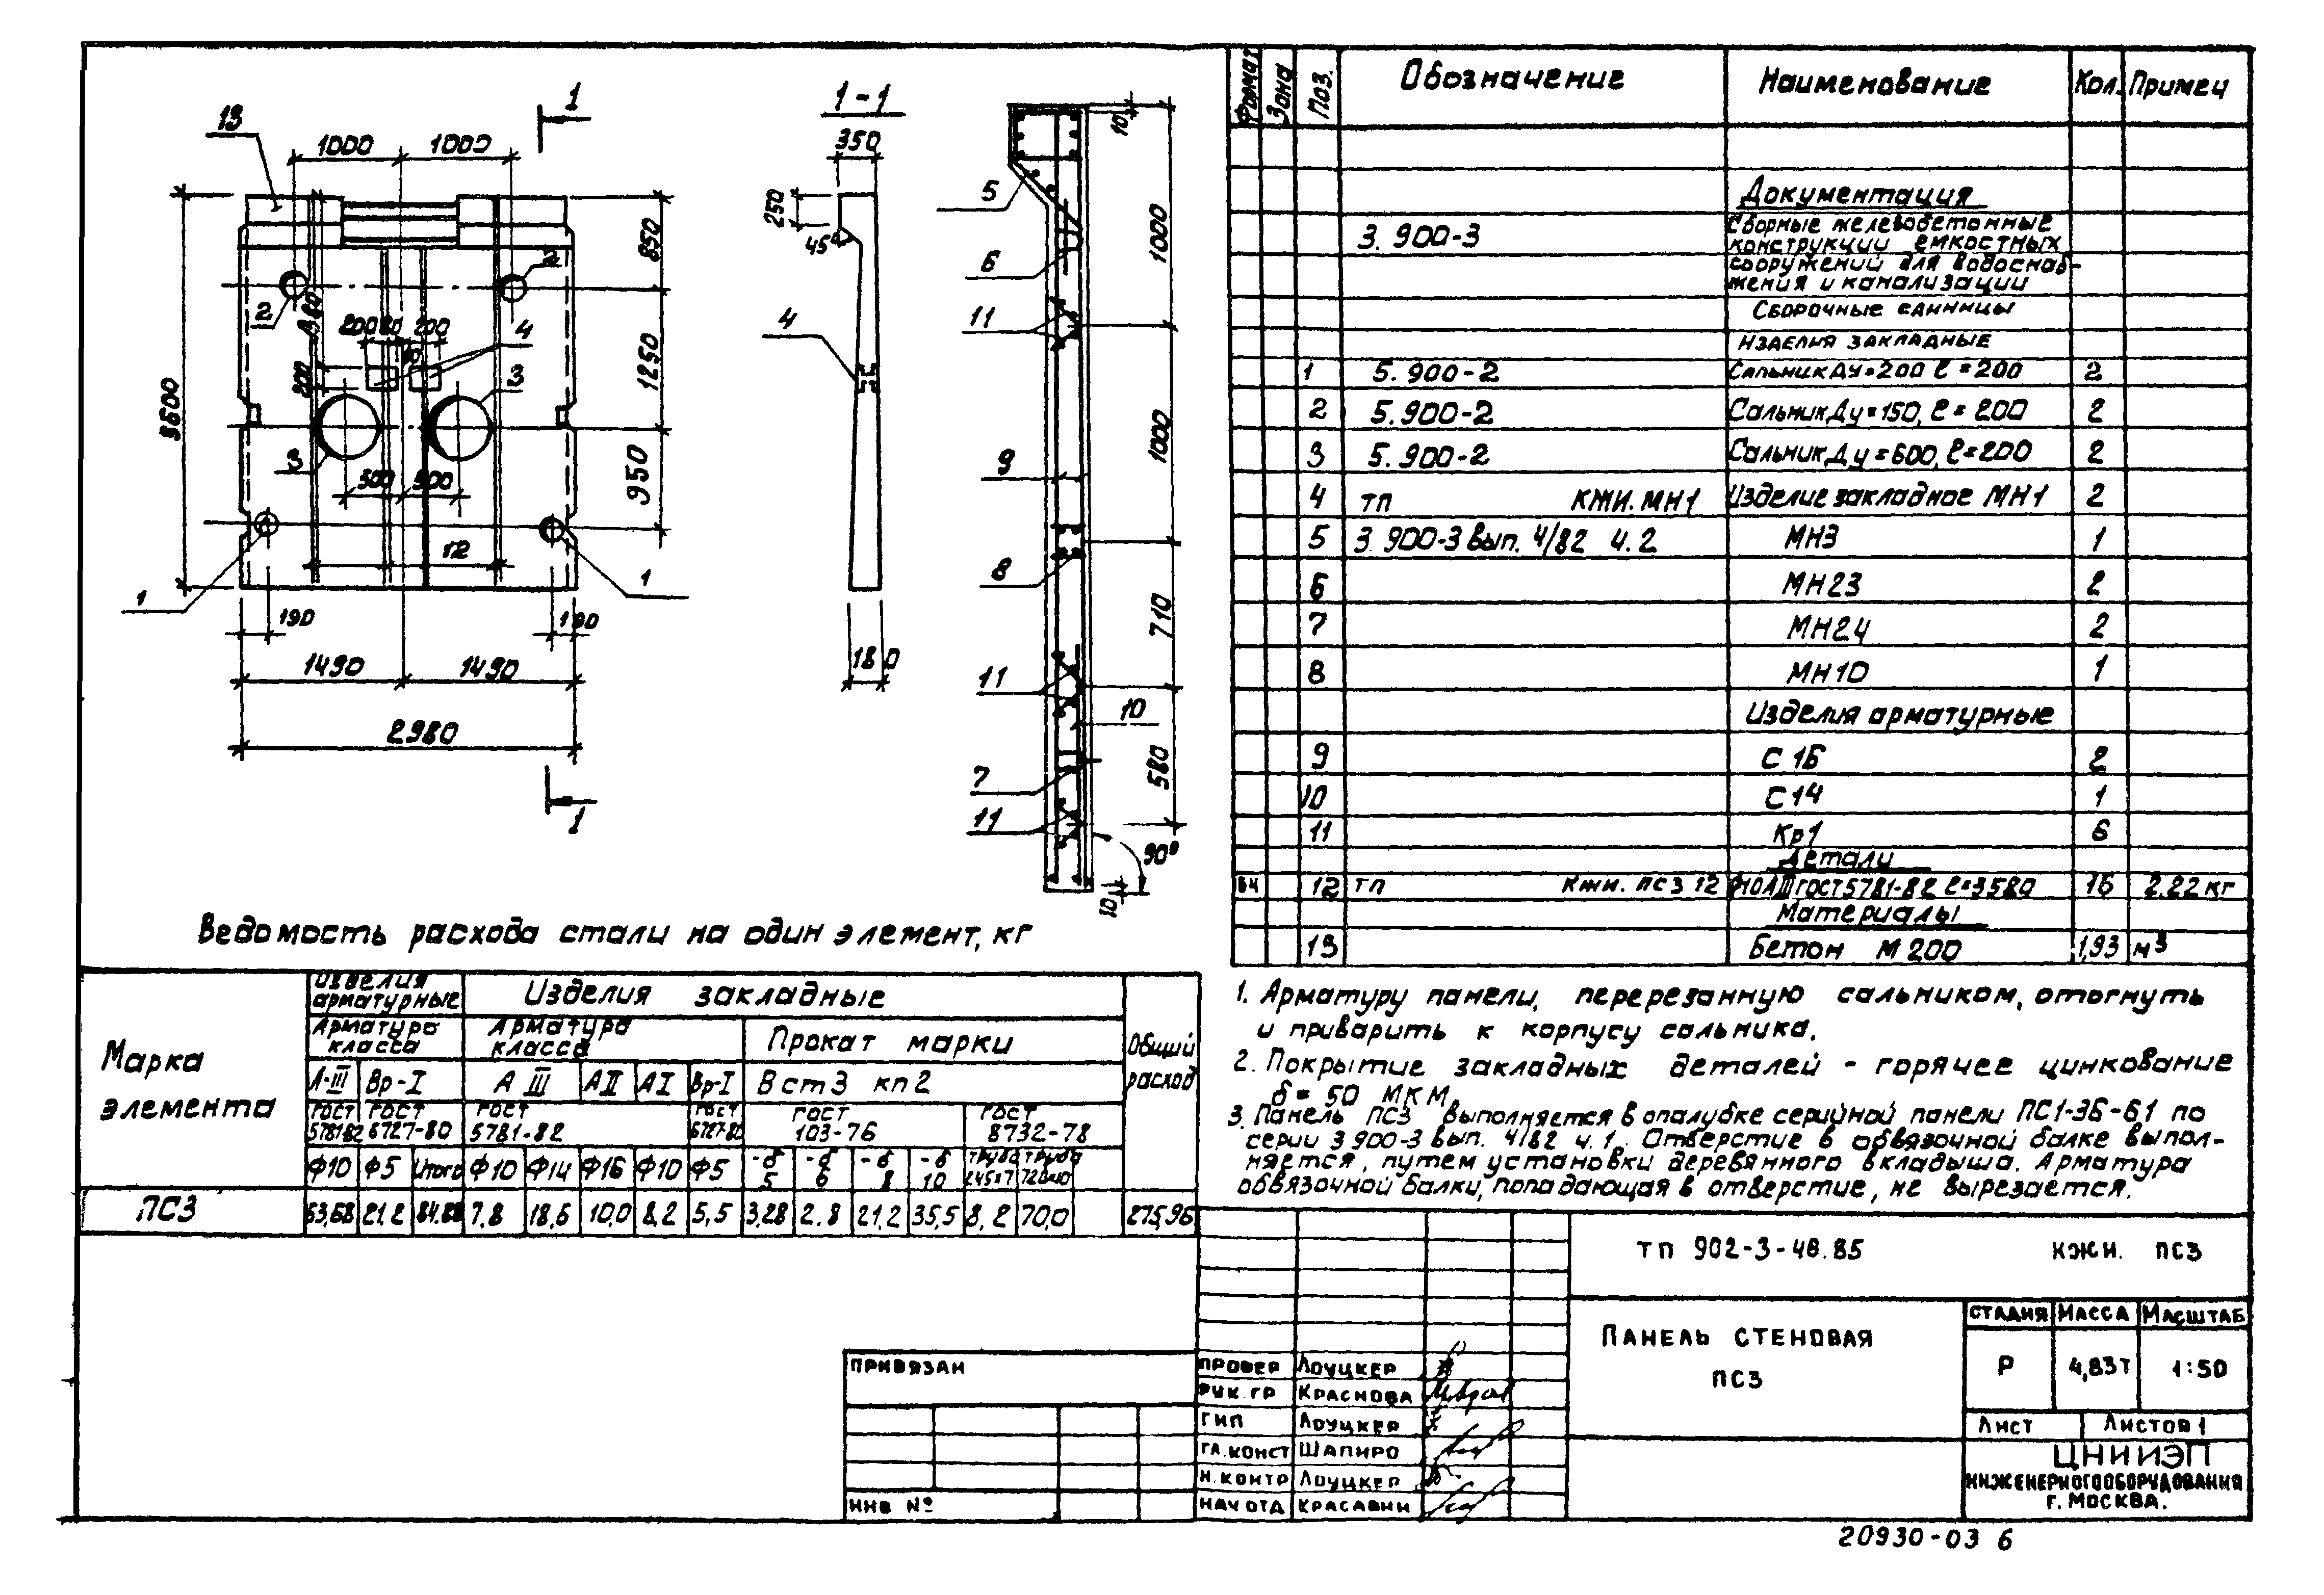 1
1-1
13
1000 1000
350
10
250
45°
5
850
1000
2
2
6
200 80 200 4
4
11
200
3
3600
1250
3
9
1000
500 500
950
12
8
1
1
710
190
190
180
11
1490 1490
10
2980
7
580
1
11
90°
10
Формат Зона Поз. Обозначение Наименование Кол. Примеч
Документация
3.900-3 Сборные железобетонные
конструкции емкостных
сооружений для водоснаб-
жения и канализации
Сборочные единицы
Изделия закладные
1 5.900-2 Сальник Ду=200 ℓ=200 2
2 5.900-2 Сальник Ду=150, ℓ=200 2
3 5.900-2 Сальник Ду=600, ℓ=200 2
4 ТП КЖИ.МН1 Изделие закладное МН1 2
5 3.900-3 вып. 4/82 ч.2 МН3 1
6 МН23 2
7 МН24 2
8 МН10 1
Изделия арматурные
9 С16 2
10 С14 1
11 Кр1 6
Детали
БЧ 12 ТП КЖИ. ПС3 12 Ф10АIII ГОСТ 5781-82 ℓ=3580 16 2.22 кг
Материалы
13 Бетон М200 1,93 м³
Ведомость расхода стали на один элемент, кг
Марка элемента
Изделия арматурные
Изделия закладные
Общий расход
Арматура класса
Арматура класса
Прокат марки
А-III Вр-I А III АII АI Вр-I ВСт3 кп2
ГОСТ 5781-82 ГОСТ 6727-80 ГОСТ 5781-82 ГОСТ 6727-80 ГОСТ 103-76 ГОСТ 8732-78
Ф10 Ф5 Итого Ф10 Ф14 Ф16 Ф10 Ф5 -δ 5 -δ 6 -δ 8 -δ 10 труба труба
ПС3 63,68 21.2 84.88 7,8 18,6 10,0 8,2 5,5 3,28 2.8 21,2 35,5 8,2 70,0 275,96
1. Арматуру панели, перерезанную сальником, отогнуть
и приварить к корпусу сальника.
2. Покрытие закладных деталей - горячее цинкование
δ = 50 МКМ
3. Панель ПС3 выполняется в опалубке серийной панели ПС1-36-Б1 по
серии 3.900-3 вып. 4/82 ч.1. Отверстие в обвязочной балке выпол-
няется, путем установки деревянного вкладыша. Арматура
обвязочной балки, попадающая в отверстие, не вырезается.
ТП 902-3-48.85 КЖИ. ПС3
ПАНЕЛЬ СТЕНОВАЯ
ПС3
СТАДИЯ МАССА МАСШТАБ
Р 4,83т 1:50
Лист Листов 1
ЦНИИЭП
ИНЖЕНЕРНОГО ОБОРУДОВАНИЯ
Г. МОСКВА.
ПРИВЯЗАН
ИНВ №
ПРОВЕР ЛОУЦКЕР
РУК. ГР КРАСНОВА
ГИП ЛОУЦКЕР
ГЛ.КОНСТ ШАПИРО
Н.КОНТР ЛОУЦКЕР
НАЧ ОТД КРАСАВИН
20930-03 6